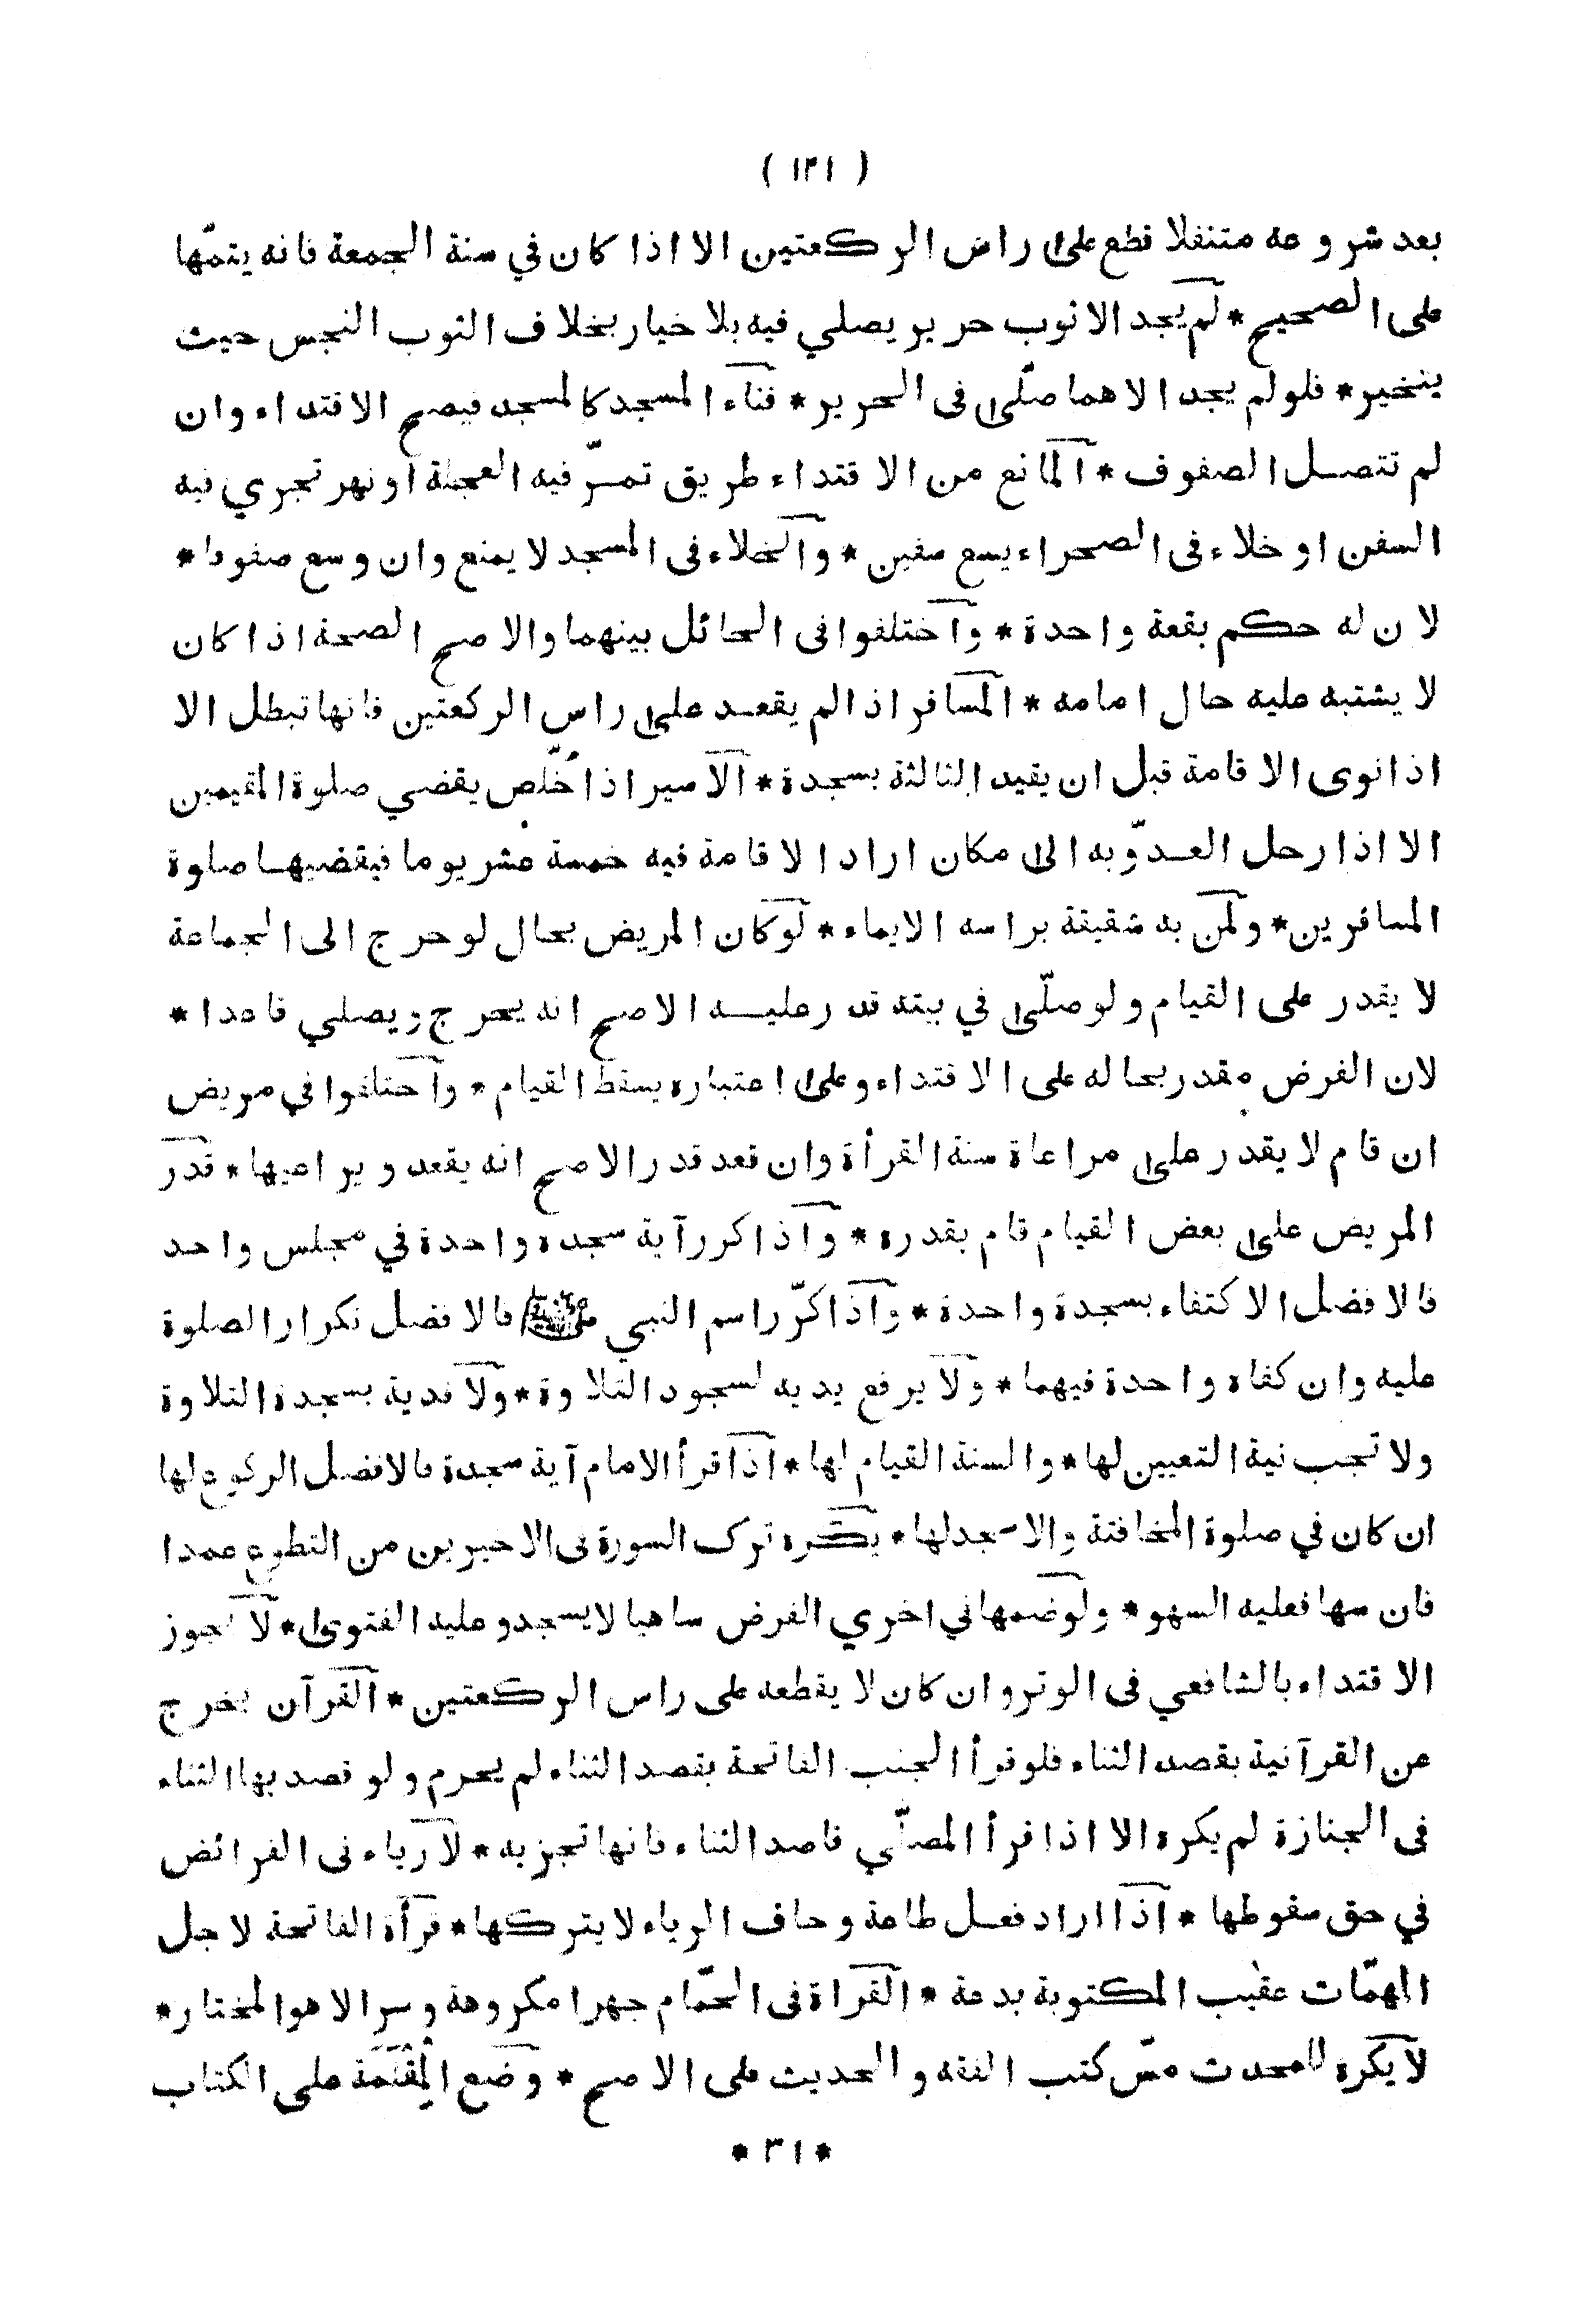 ( ١٢١ )
بعد شروعه متنفلا قطع على راس الركعتين الا اذا كان في سنة الجمعة فانه يتمّها
على الصحيح * لم يجد الا ثوب حرير يصلي فيه بلا خيار بخلاف الثوب النجس حيث
يتخير * فلو لم يجد الا هما صلّى فى الحرير * فناء المسجد كالمسجد فيصح الاقتداء وان
لم تتصل الصفوف * المانع من الاقتداء طريق تمرّ فيه العجلة او نهر تجري فيه
السفن او خلاء فى الصحراء يسع صفين * والخلاء فى المسجد لا يمنع وان وسع صفوفا *
لان له حكم بقعة واحدة * واختلفوا فى الحائل بينهما والاصح الصحة اذا كان
لا يشتبه عليه حال امامه * المسافر اذا لم يقعد على راس الركعتين فانها تبطل الا
اذا نوى الاقامة قبل ان يقيد الثالثة بسجدة * الاسير اذا خُلّص يقضي صلوة المقيمين
الا اذا رحل العدوّ به الى مكان اراد الاقامة فيه خمسة عشر يوما فيقضيها صلوة
المسافرين * ولمن به شقيقة براسه الايماء * لو كان المريض بحال لو خرج الى الجماعة
لا يقدر على القيام ولو صلّى في بيته قدر عليه الاصح انه يخرج ويصلي قاعدا *
لان الفرض مقدر بحاله على الاقتداء وعلى اعتباره يسقط القيام * واختلفوا في مريض
ان قام لا يقدر على مراعاة سنة القرأة وان قعد قدر الاصح انه يقعد ويراعيها * قدر
المريض على بعض القيام قام بقدره * واذا كرر آية سجدة واحدة في مجلس واحد
فالافضل الاكتفاء بسجدة واحدة * واذا كرّر اسم النبي ﷺ فالافضل تكرار الصلوة
عليه وان كفاه واحدة فيهما * ولا يرفع يديه لسجود التلاوة * ولا فدية بسجدة التلاوة
ولا تجب نية التعيين لها * والسنة القيام لها * اذا قرأ الامام آية سجدة فالافضل الركوع لها
ان كان في صلوة المخافتة والا سجد لها * يكره ترك السورة فى الاخيرين من التطوع عمدا
فان سها فعليه السهو * ولو ضمها في اخري الفرض ساهيا لا يسجد وعليه الفتوى * لا تجوز
الاقتداء بالشافعي فى الوتر وان كان لا يقطعه على راس الركعتين * القرآن يخرج
عن القرآنية بقصد الثناء فلو قرأ الجنب الفاتحة بقصد الثناء لم يحرم ولو قصد بها الثناء
فى الجنازة لم يكره الا اذا قرأ المصلّي قاصد الثناء فانها تجزيه * لا رياء فى الفرائض
في حق سقوطها * اذا اراد فعل طاعة وخاف الرياء لا يتركها * قرأة الفاتحة لاجل
المهمّات عقيب المكتوبة بدعة * القراة فى الحمّام جهرا مكروهة وسرا لا هو المختار *
لا يكره للمحدث مسّ كتب الفقه والحديث على الاصح * وضع المِقْلَمَة على الكتاب
* ٣١ *